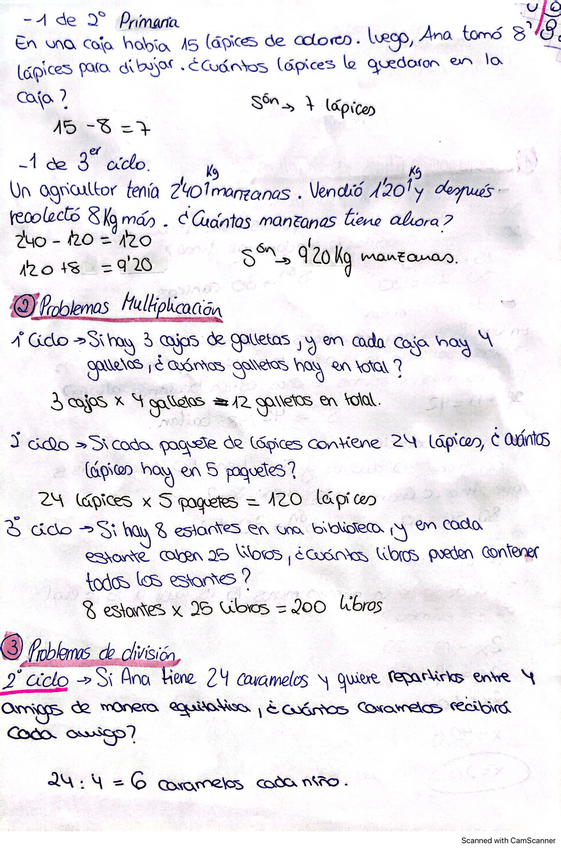 -1 de 2º Primaria
En una caja había 15 lápices de colores. luego, Ana tomó 8
lápices para dibujar. ¿Cuántos lápices le quedaron en la
caja?
Sºn → 7 lápices
15 - 8 = 7
-1 de 3er ciclo.
Un agricultor tenía 2'40 Kg manzanas. Vendió 1'20 Kg y después
recolectó 8 Kg más. ¿Cuántas manzanas tiene ahora?
2'40 - 1'20 = 1'20
1'20 + 8 = 9'20
Sºn → 9'20 Kg manzanas.
② Problemas Multiplicación
1º Ciclo → Si hay 3 cajas de galletas, y en cada caja hay 4
galletas, ¿cuántas galletas hay en total?
3 cajas x 4 galletas = 12 galletas en total.
2º ciclo → Si cada paquete de lápices contiene 24 lápices, ¿cuántos
lápices hay en 5 paquetes?
24 lápices x 5 paquetes = 120 lápices
3º ciclo → Si hay 8 estantes en una biblioteca, y en cada
estante caben 25 libros, ¿cuántos libros pueden contener
todos los estantes?
8 estantes x 25 libros = 200 libros
③ Problemas de división
2º ciclo → Si Ana tiene 24 caramelos y quiere repartirlos entre 4
amigos de manera equitativa, ¿cuántos caramelos recibirá
cada amigo?
24 : 4 = 6 caramelos cada niño.
Scanned with CamScanner